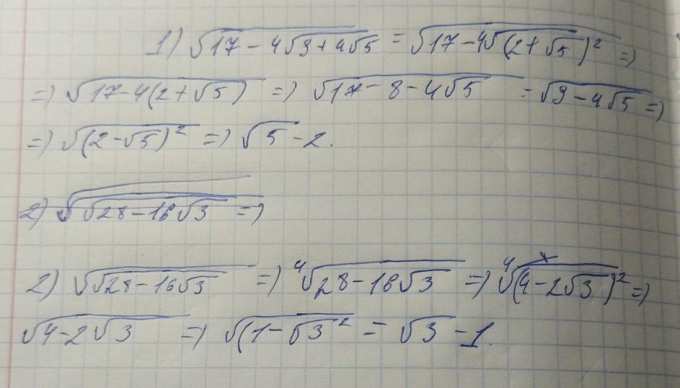 1) √(17 - 4√(9 + 4√5)) = √(17 - 4√(2 + √5)²) =>
=> √(17 - 4(2 + √5)) => √(17 - 8 - 4√5) = √(9 - 4√5) =>
=> √(2 - √5)² => √5 - 2.
2) √√(28 - 16√3) =>
2) √√(28 - 16√3) => ⁴√(28 - 16√3) => ⁴√(4 - 2√3)² =>
√(4 - 2√3) => √(1 - √3)² = √3 - 1.